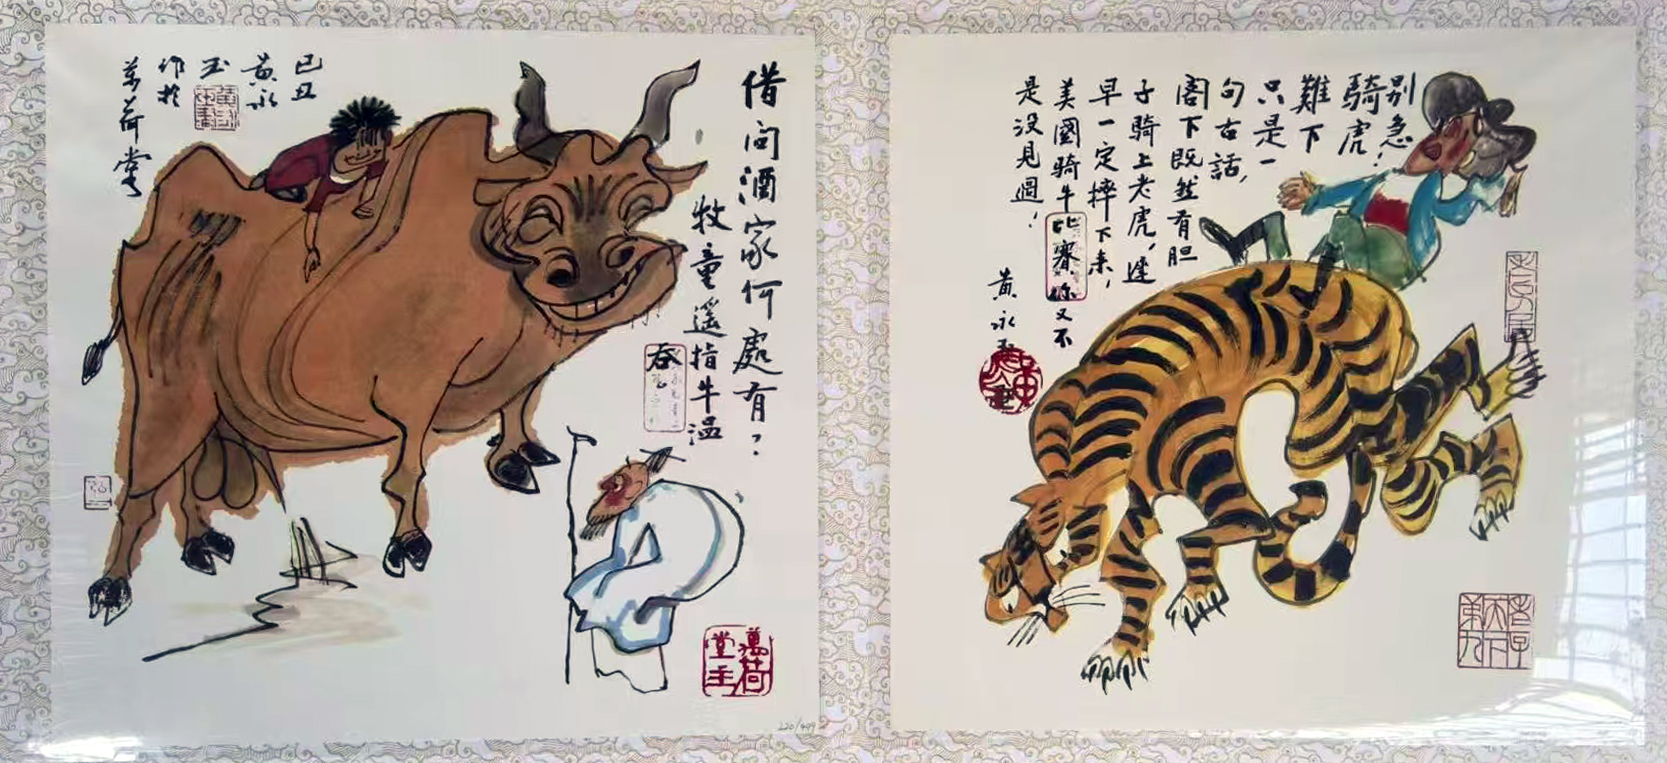 借问酒家何處有?
牧童遥指牛温
吞
己丑
黄永
玉
作於
萬荷堂
萬荷
堂主
别急!
騎虎,
難下
只是一
句古話,
阁下既然有胆
子騎上老虎,遲
早一定摔下来,
美國騎牛比賽,你又不
是没見過!
黄永玉
老子
天下
第九